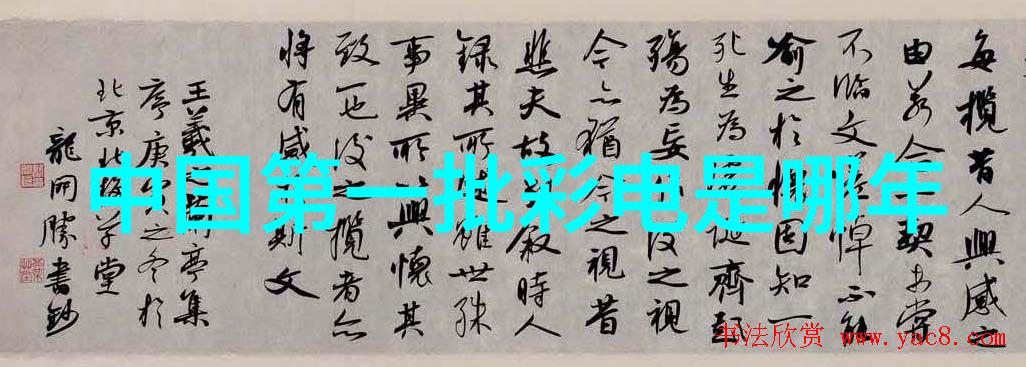 中国第一批彩电是哪年
每攬昔人興感之
由若合一契未嘗
不臨文嗟悼不能
喻之於懷固知一
死生為虛誕齊彭
殤為妄作後之視
今亦猶今之視昔
悲夫故列敘時人
錄其所述雖世殊
事異所以興懷其
致一也後之攬者亦
將有感於斯文
王羲之蘭亭集
序庚寅之冬於
北京北草堂
龍開勝書鈔
书法欣赏
www.yac8.com